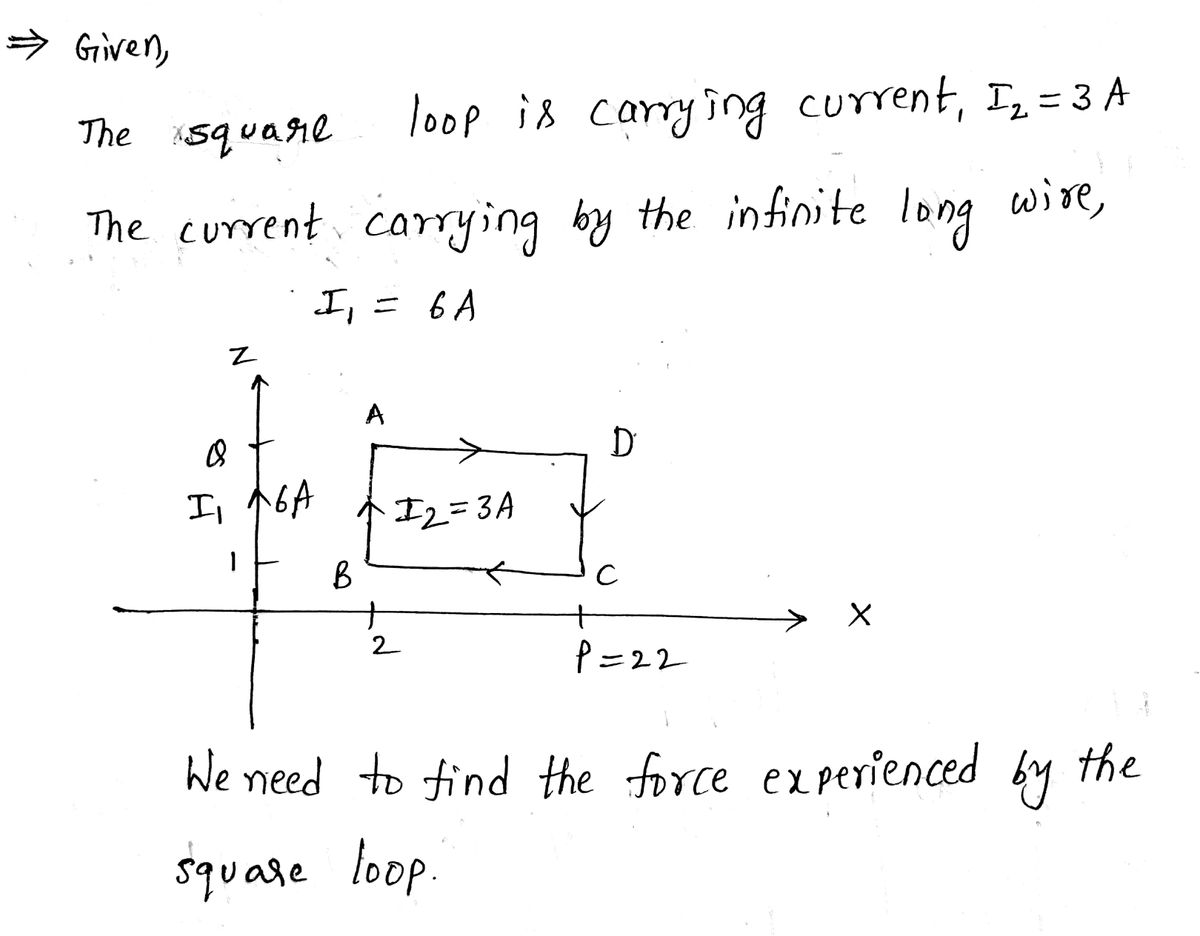 ⇒ Given,
The square loop is carrying current, I₂ = 3 A
The current carrying by the infinite long wire,
I₁ = 6 A
Z
A
Q
D
I₁ 6A
I₂ = 3A
1
B
C
X
2
P = 22
We need to find the force experienced by the
square loop.